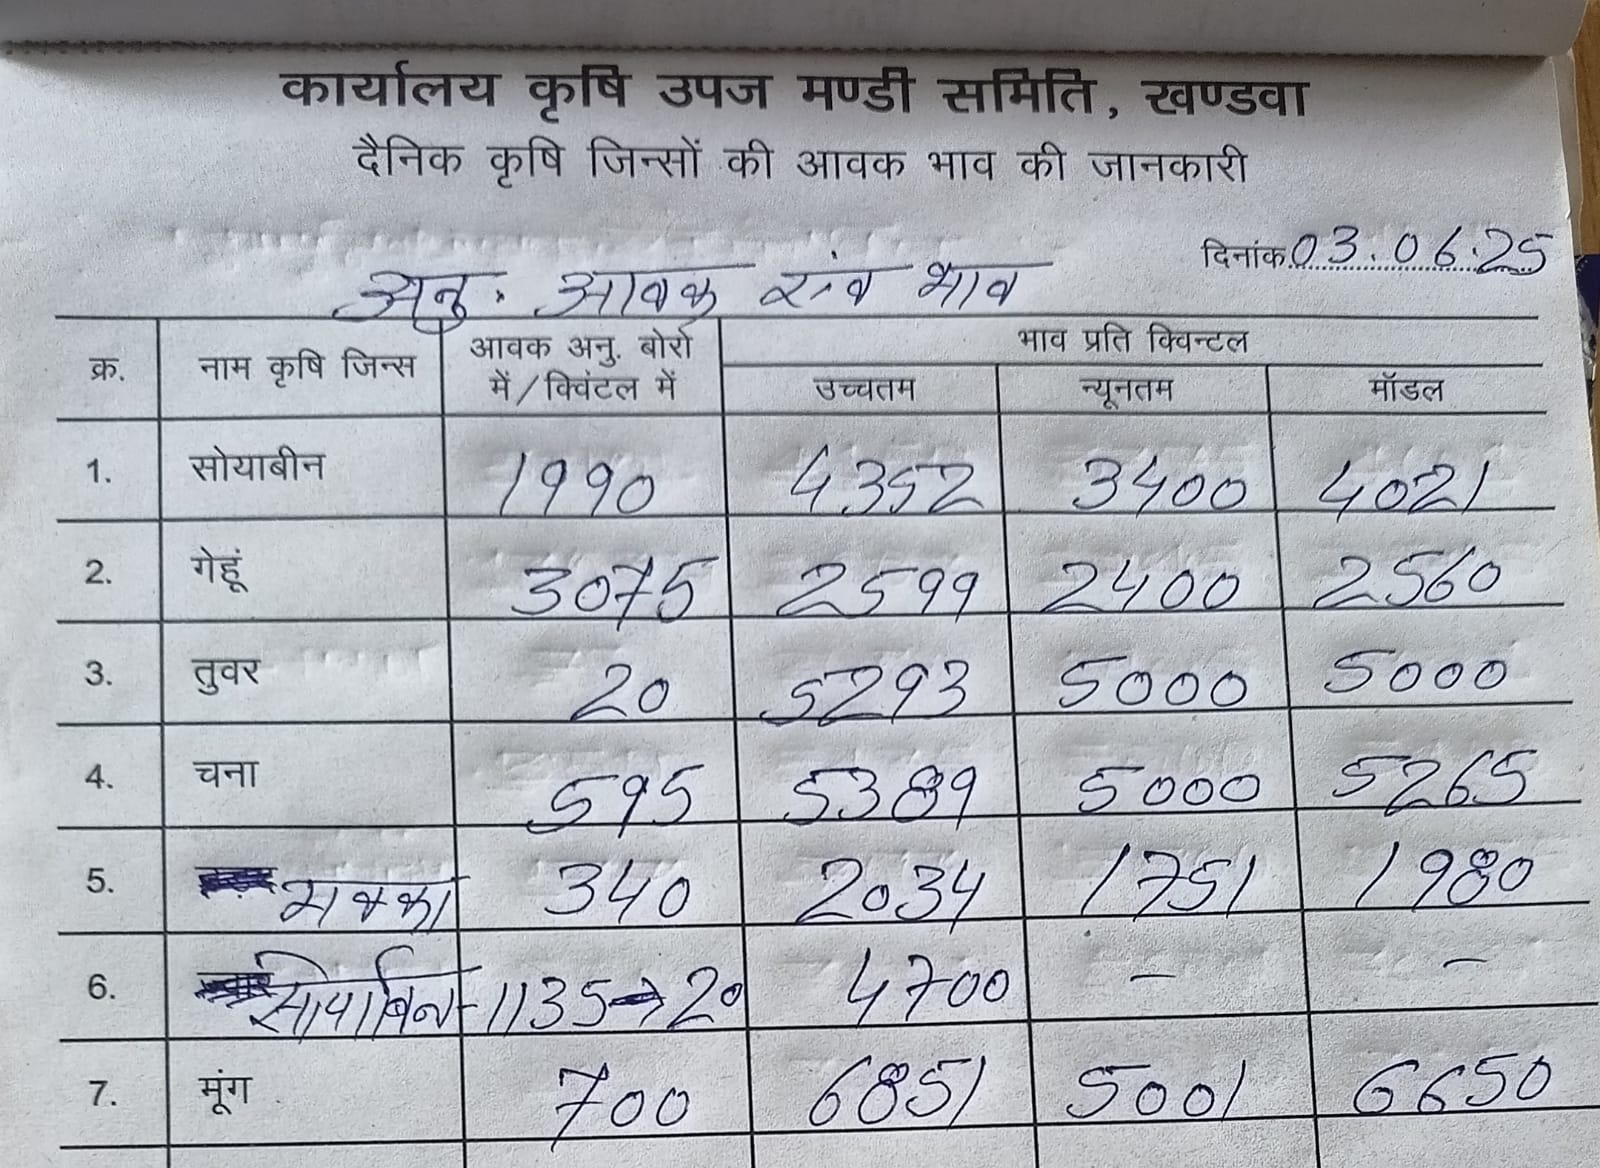 कार्यालय कृषि उपज मण्डी समिति, खण्डवा
दैनिक कृषि जिन्सों की आवक भाव की जानकारी
दिनांक 03.06.25
अनु. आवक एंव भाव
क्र. नाम कृषि जिन्स आवक अनु. बोरो में/क्विंटल में भाव प्रति क्विन्टल
उच्चतम न्यूनतम मॉडल
1. सोयाबीन 1990 4352 3400 4021
2. गेहूं 3075 2599 2400 2560
3. तुवर 20 5293 5000 5000
4. चना 595 5389 5000 5265
5. मक्का 340 2034 1751 1980
6. सोयाबिन-1135→20 4700 - -
7. मूंग 700 6851 5001 6650